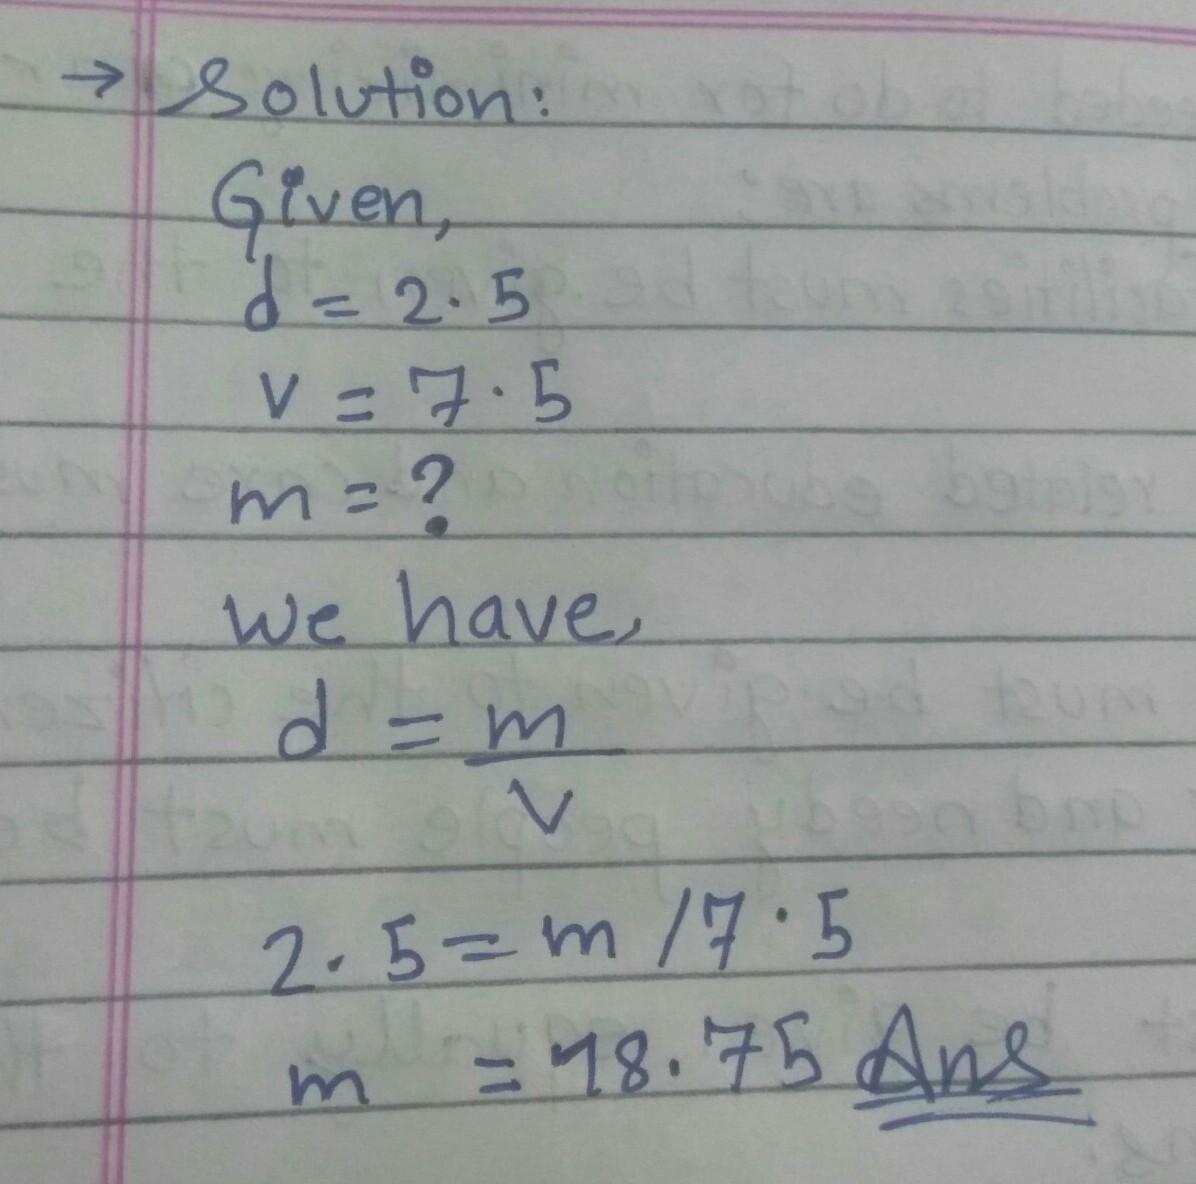 → Solution:
Given,
d = 2.5
v = 7.5
m = ?
we have,
d = m
v
2.5 = m / 7.5
m = 18.75 Ans